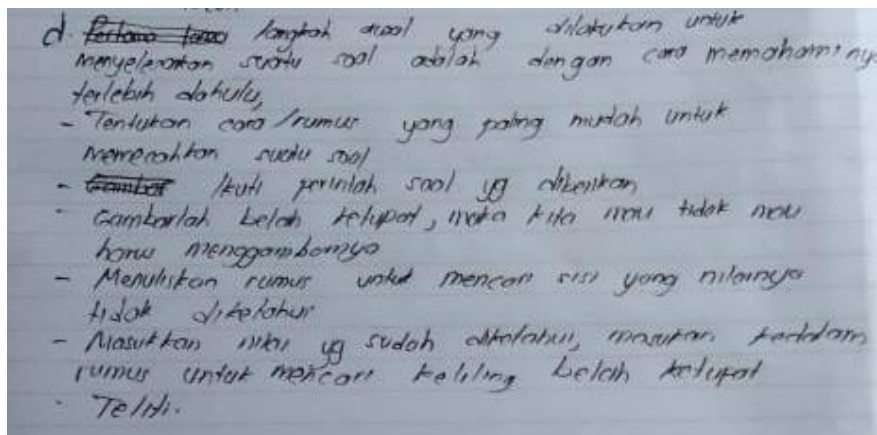 d. langkah awal yang dilakukan untuk
menyelesaikan suatu soal adalah dengan cara memahaminy
terlebih dahulu,
- Tentukan cara/rumus yang paling mudah untuk
memecahkan suatu soal
- Gambar Ikuti perintah soal yg diberikan
- Gambarlah belah ketupat, maka kita mau tidak mau
harus menggambarnya
- Menuliskan rumus untuk mencari sisi yang nilainya
tidak diketahui
- Masukkan nilai yg sudah diketahui, masukan kedalam
rumus untuk mencari keliling belah ketupat
- Teliti.